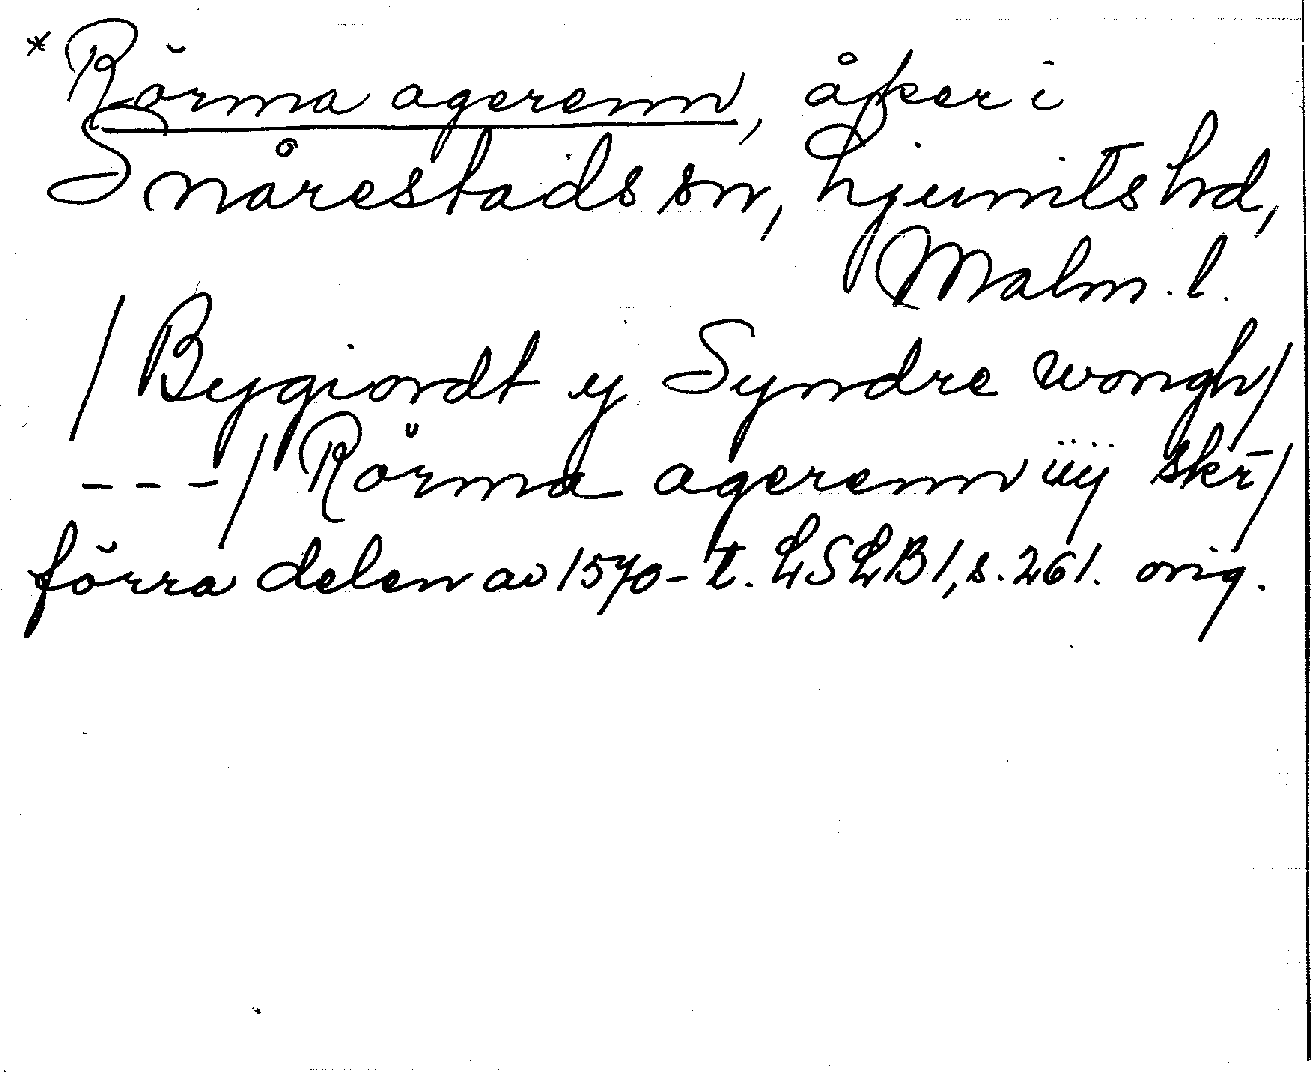 * Rörma agerenn, åker i
Snårestads sn, Ljunits hd,
Malm. l.
/ Bygiordt y Syndre wongh/
---/ Rörma agerenn üÿ skr̄/
förra delen av 1570-t. LSLB1, s. 261. orig.